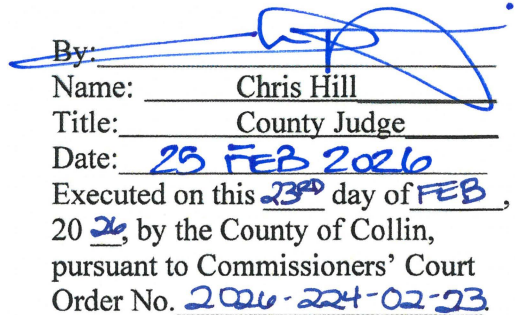 By:
Name: Chris Hill
Title: County Judge
Date: 25 FEB 2026
Executed on this 23RD day of FEB,
20 26, by the County of Collin,
pursuant to Commissioners' Court
Order No. 2026-224-02-23.